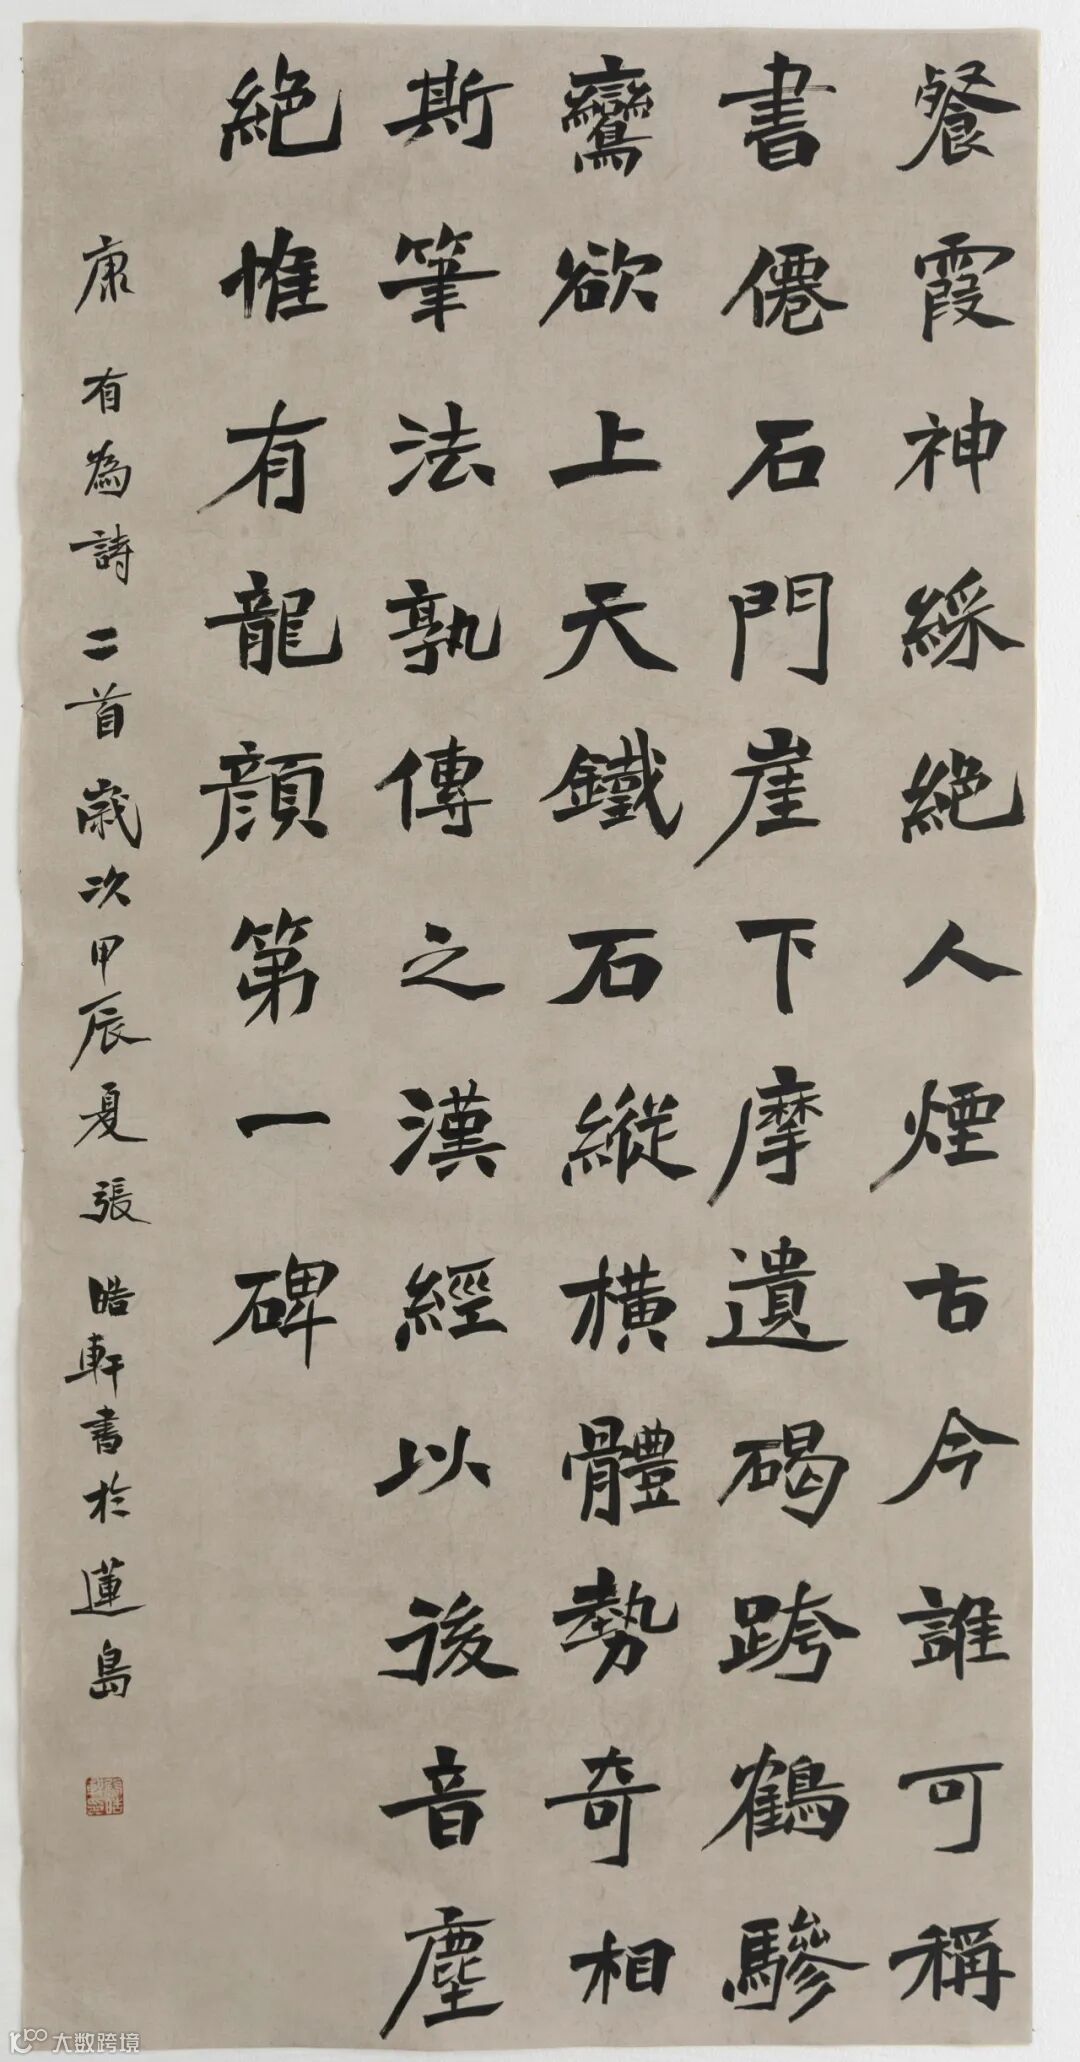 餐霞神綵絕人煙古今誰可稱
書僊石門崖下摩遺碣跨鶴驂
鸞欲上天鐵石縱橫體勢奇相
斯筆法孰傳之漢經以後音塵
絕惟有龍顏第一碑
康有為詩二首歲次甲辰夏張皓軒書於蓮島
大数跨境